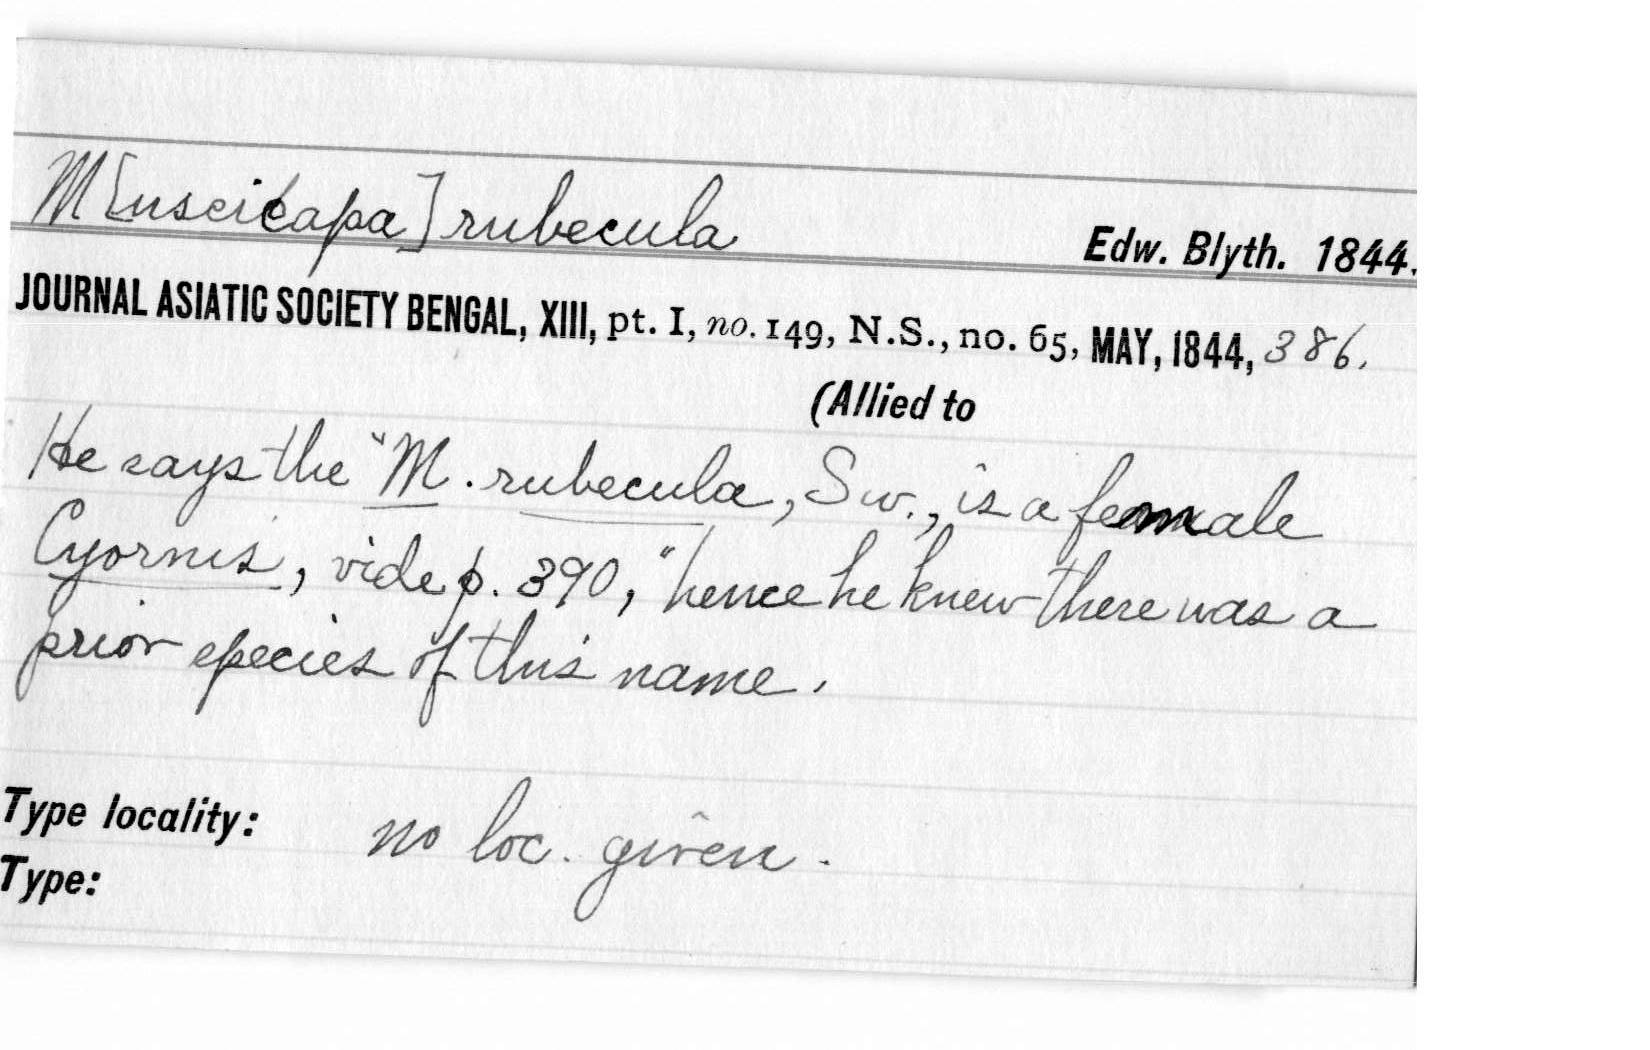 M[uscicapa] rubecula
Edw. Blyth. 1844.
JOURNAL ASIATIC SOCIETY BENGAL, XIII, pt. I, no. 149, N.S., no. 65, MAY, 1844, 386.
(Allied to
He says the "M. rubecula, Sw., is a female
Cyornis, vide p. 390," hence he knew there was a
prior species of this name.
Type locality: no loc. given.
Type: